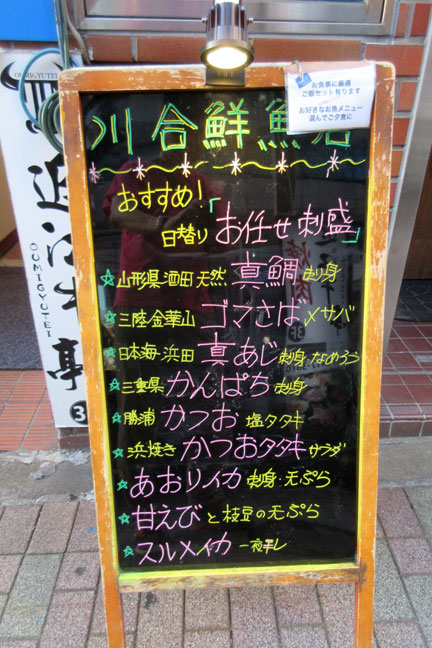 川合鮮魚店
お食事に最適
ご飯セット有ります
お好きなお魚メニュー
選んでご夕食に
おすすめ!
日替り「お任せ刺盛」
☆山形県酒田天然 真鯛 刺身
☆三陸・金華山 ゴマさば 〆サバ
☆日本海・浜田 真あじ 刺身 なめろう
☆三重県 かんぱち 刺身
☆勝浦 かつお 塩タタキ
☆浜焼き かつおタタキ サラダ
☆あおりイカ 刺身・天ぷら
☆甘えびと枝豆の天ぷら
☆スルメイカ 一夜干し
OUMIGYUTEI
近江牛亭
OUMIGYUTEI
3